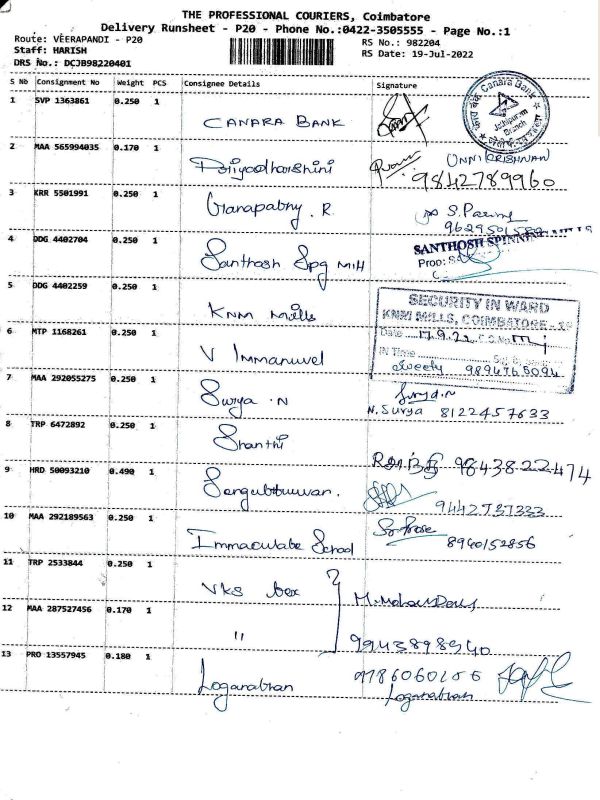 THE PROFESSIONAL COURIERS, Coimbatore
Delivery Runsheet - P20 - Phone No.:0422-3505555 - Page No.:1
Route: VEERAPANDI - P20
RS No.: 982204
Staff: HARISH
RS Date: 19-Jul-2022
DRS No.: DCJB98220401
S Nb Consignment No Weight PCS Consignee Details Signature
1 SVP 1363861 0.250 1
CANARA BANK
Canara Bank
Branch
2 MAA 565994035 0.170 1
UNNIKRISHNAN
9842789960
3 KRR 5501991 0.250 1
Ganapathy . R
4 DDG 4402704 0.250 1
SANTHOSH SPINNING MILLS
Santhosh Spg Mill
5 DDG 4402259 0.250 1
KNM Mills
SECURITY IN WARD
KNM MILLS, COIMBATORE
Date
IN Time
9894765094
6 MTP 1168261 0.250 1
V Immanuvel
7 MAA 292055275 0.250 1
Surya . N
N. Surya 8122457633
8 TRP 6472892 0.250 1
Shanthi
98438 22474
9 HRD 50093210 0.490 1
9442737333
10 MAA 292189563 0.250 1
Immaculate School
8940152856
11 TRP 2533844 0.250 1
VKS
12 MAA 287527456 0.170 1
"
9943898940
13 PRO 13557945 0.180 1
Loganathan
Loganathan